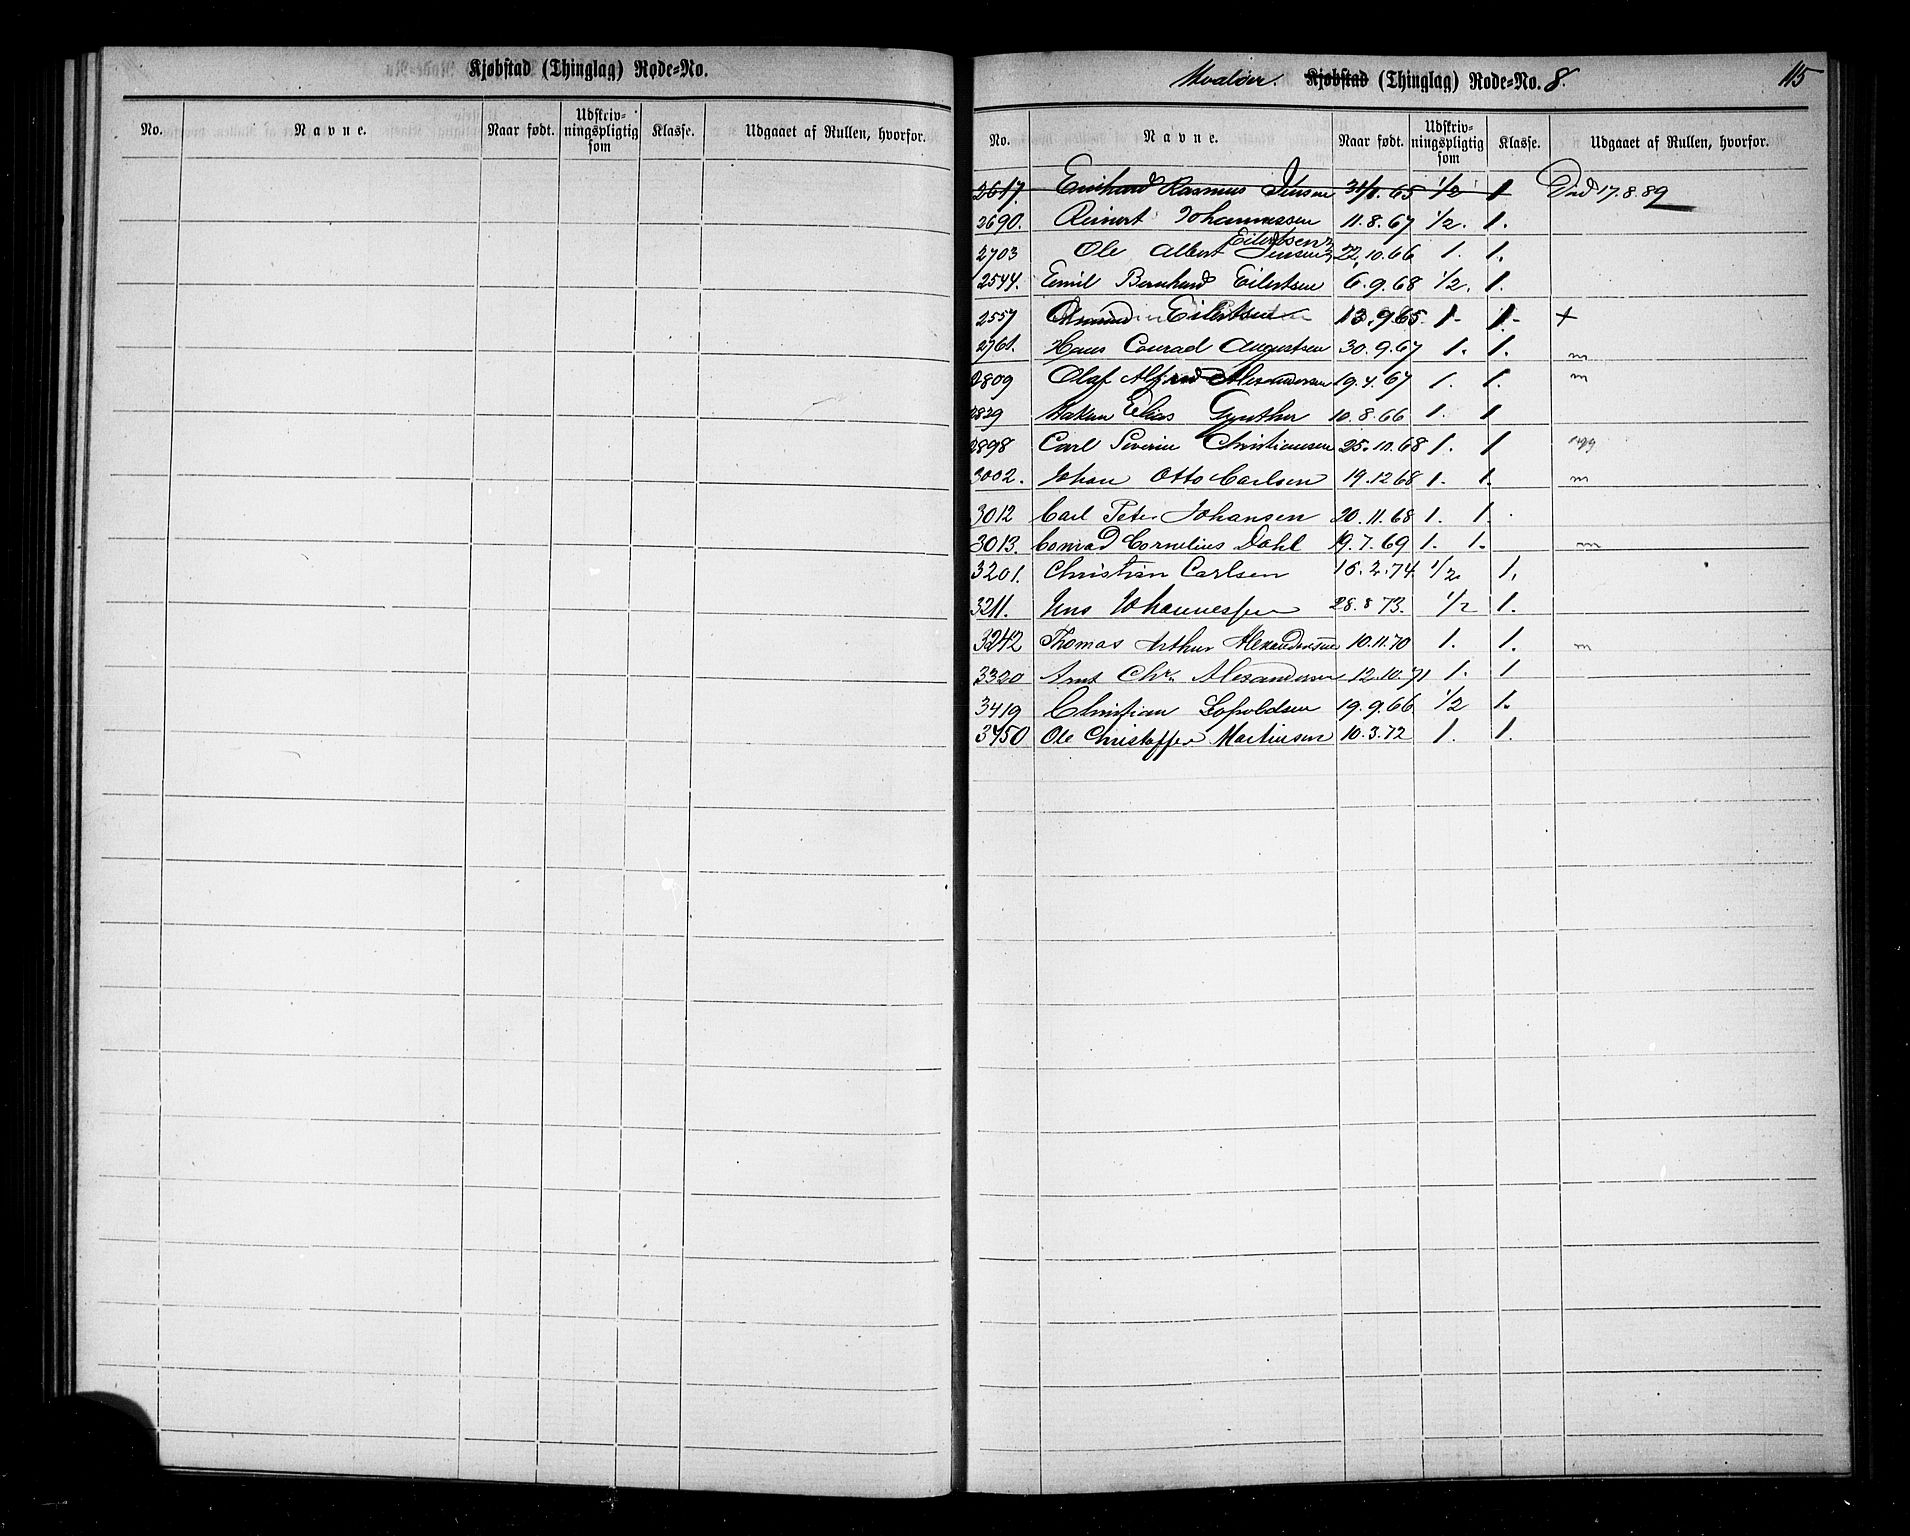 Kjøbstad (Thinglag) Rode=No.
No. Navne. Naar født. Udskriv-ningspligtig som Klasse. Udgaaet af Rullen, hvorfor.
Hvaløer. Kjøbstad (Thinglag) Rode=No. 8. 115
No. Navne. Naar født. Udskriv-ningspligtig som Klasse. Udgaaet af Rullen, hvorfor.
2617. Rasmus Jensen 31/1.65 1/2 1 Død 17.8.89
2690. Reinert Johannessen 11.8.67 1/2. 1.
Eilertsen
2703 Ole Albert Jensen 22.10.66 1. 1.
2544. Emil Bernhard Eilertsen 6.9.68 1/2. 1.
2557 Eilertsen 13.9.65. 1- 1- +
2761. Hans Conrad Augustsen 30.9.67 1. 1. m
2809 Olaf Alfred Alexandersen 19.4.67 1. 1. m
2829 Hakon Elias Gynther 10.8.66 1. 1
2898 Carl Severin Christiansen 25.11.68 1. 1
3002. Johan Otto Carlsen 19.12 68 1. 1. m
3012 Carl Peter Johansen 20.11.68 1. 1.
3013. Conrad Cornelius Dahl 19.7.69 1. 1. m
3201. Christian Carlsen 16.2.74. 1/2. 1.
3211. Jens Johannessen 28.8 73. 1/2 1.
3242 Thomas Arthur Alexandersen 10.11.70 1. 1. m
3320 Arnt Chr. Alexandersen 12.10.71 1. 1
3419 Christian Lopoldsen 19.9.66 1/2 1.
3450 Ole Christoffer Martinsen 10.3.72 1. 1.